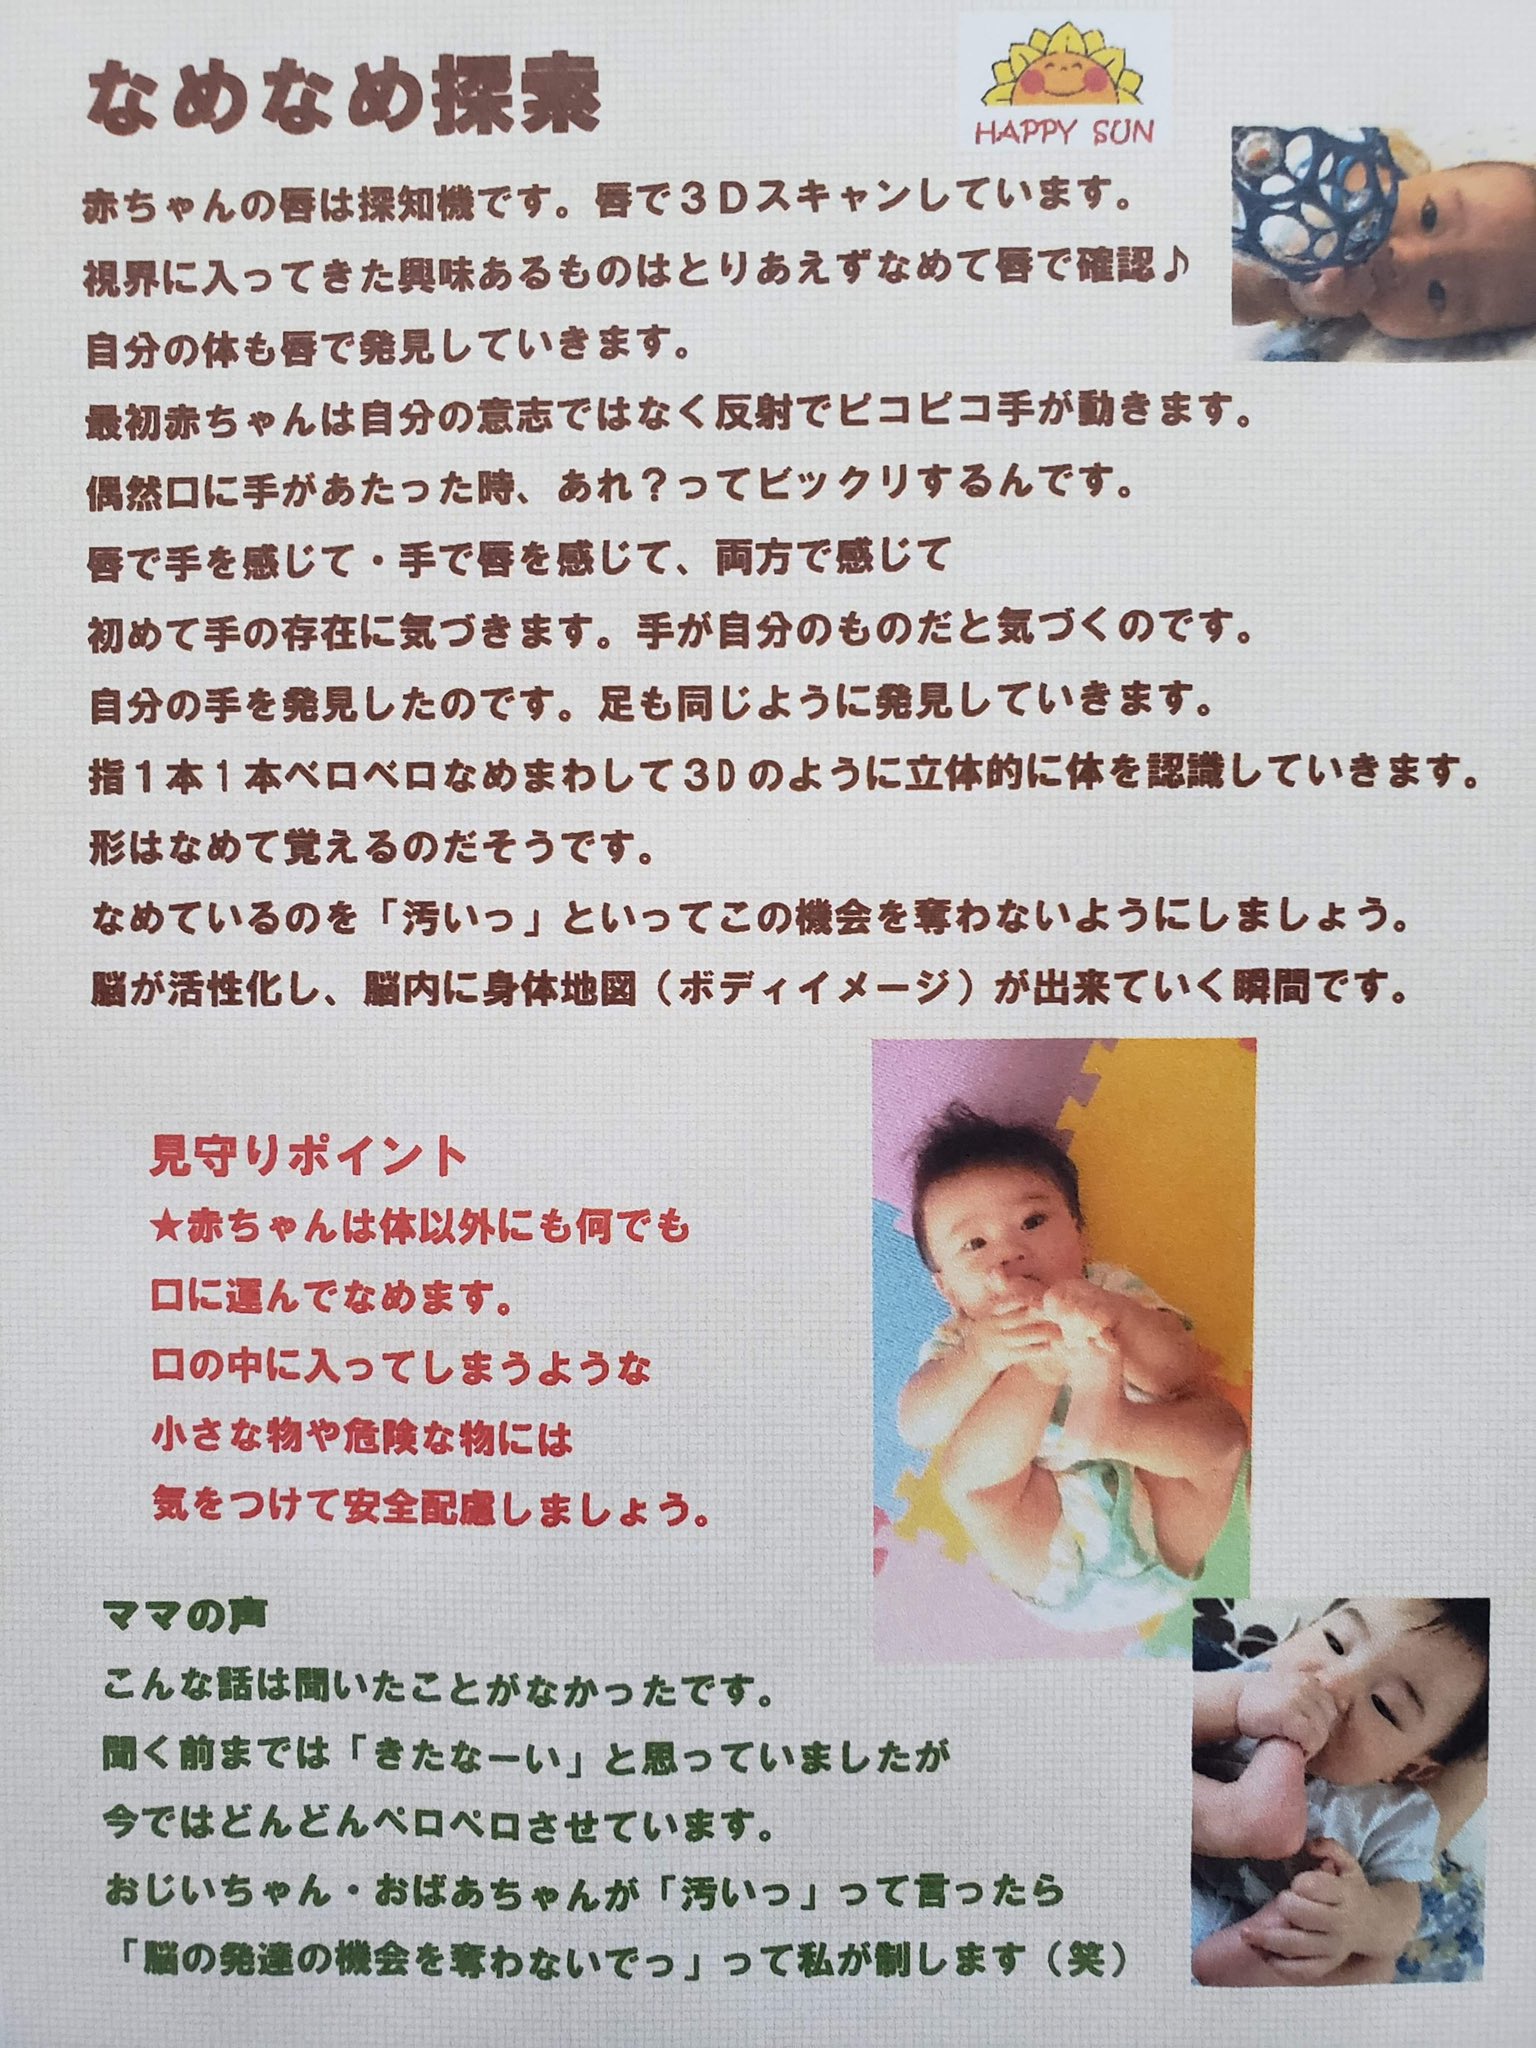 なめなめ探索
HAPPY SUN
赤ちゃんの唇は探知機です。唇で３Ｄスキャンしています。
視界に入ってきた興味あるものはとりあえずなめて唇で確認♪
自分の体も唇で発見していきます。
最初赤ちゃんは自分の意志ではなく反射でピコピコ手が動きます。
偶然口に手があたった時、あれ？ってビックリするんです。
唇で手を感じて・手で唇を感じて、両方で感じて
初めて手の存在に気づきます。手が自分のものだと気づくのです。
自分の手を発見したのです。足も同じように発見していきます。
指１本１本ベロベロなめまわして３Dのように立体的に体を認識していきます。
形はなめて覚えるのだそうです。
なめているのを「汚いっ」といってこの機会を奪わないようにしましょう。
脳が活性化し、脳内に身体地図（ボディイメージ）が出来ていく瞬間です。
見守りポイント
★赤ちゃんは体以外にも何でも
口に運んでなめます。
口の中に入ってしまうような
小さな物や危険な物には
気をつけて安全配慮しましょう。
ママの声
こんな話は聞いたことがなかったです。
聞く前までは「きたなーい」と思っていましたが
今ではどんどんペロペロさせています。
おじいちゃん・おばあちゃんが「汚いっ」って言ったら
「脳の発達の機会を奪わないでっ」って私が制します（笑）